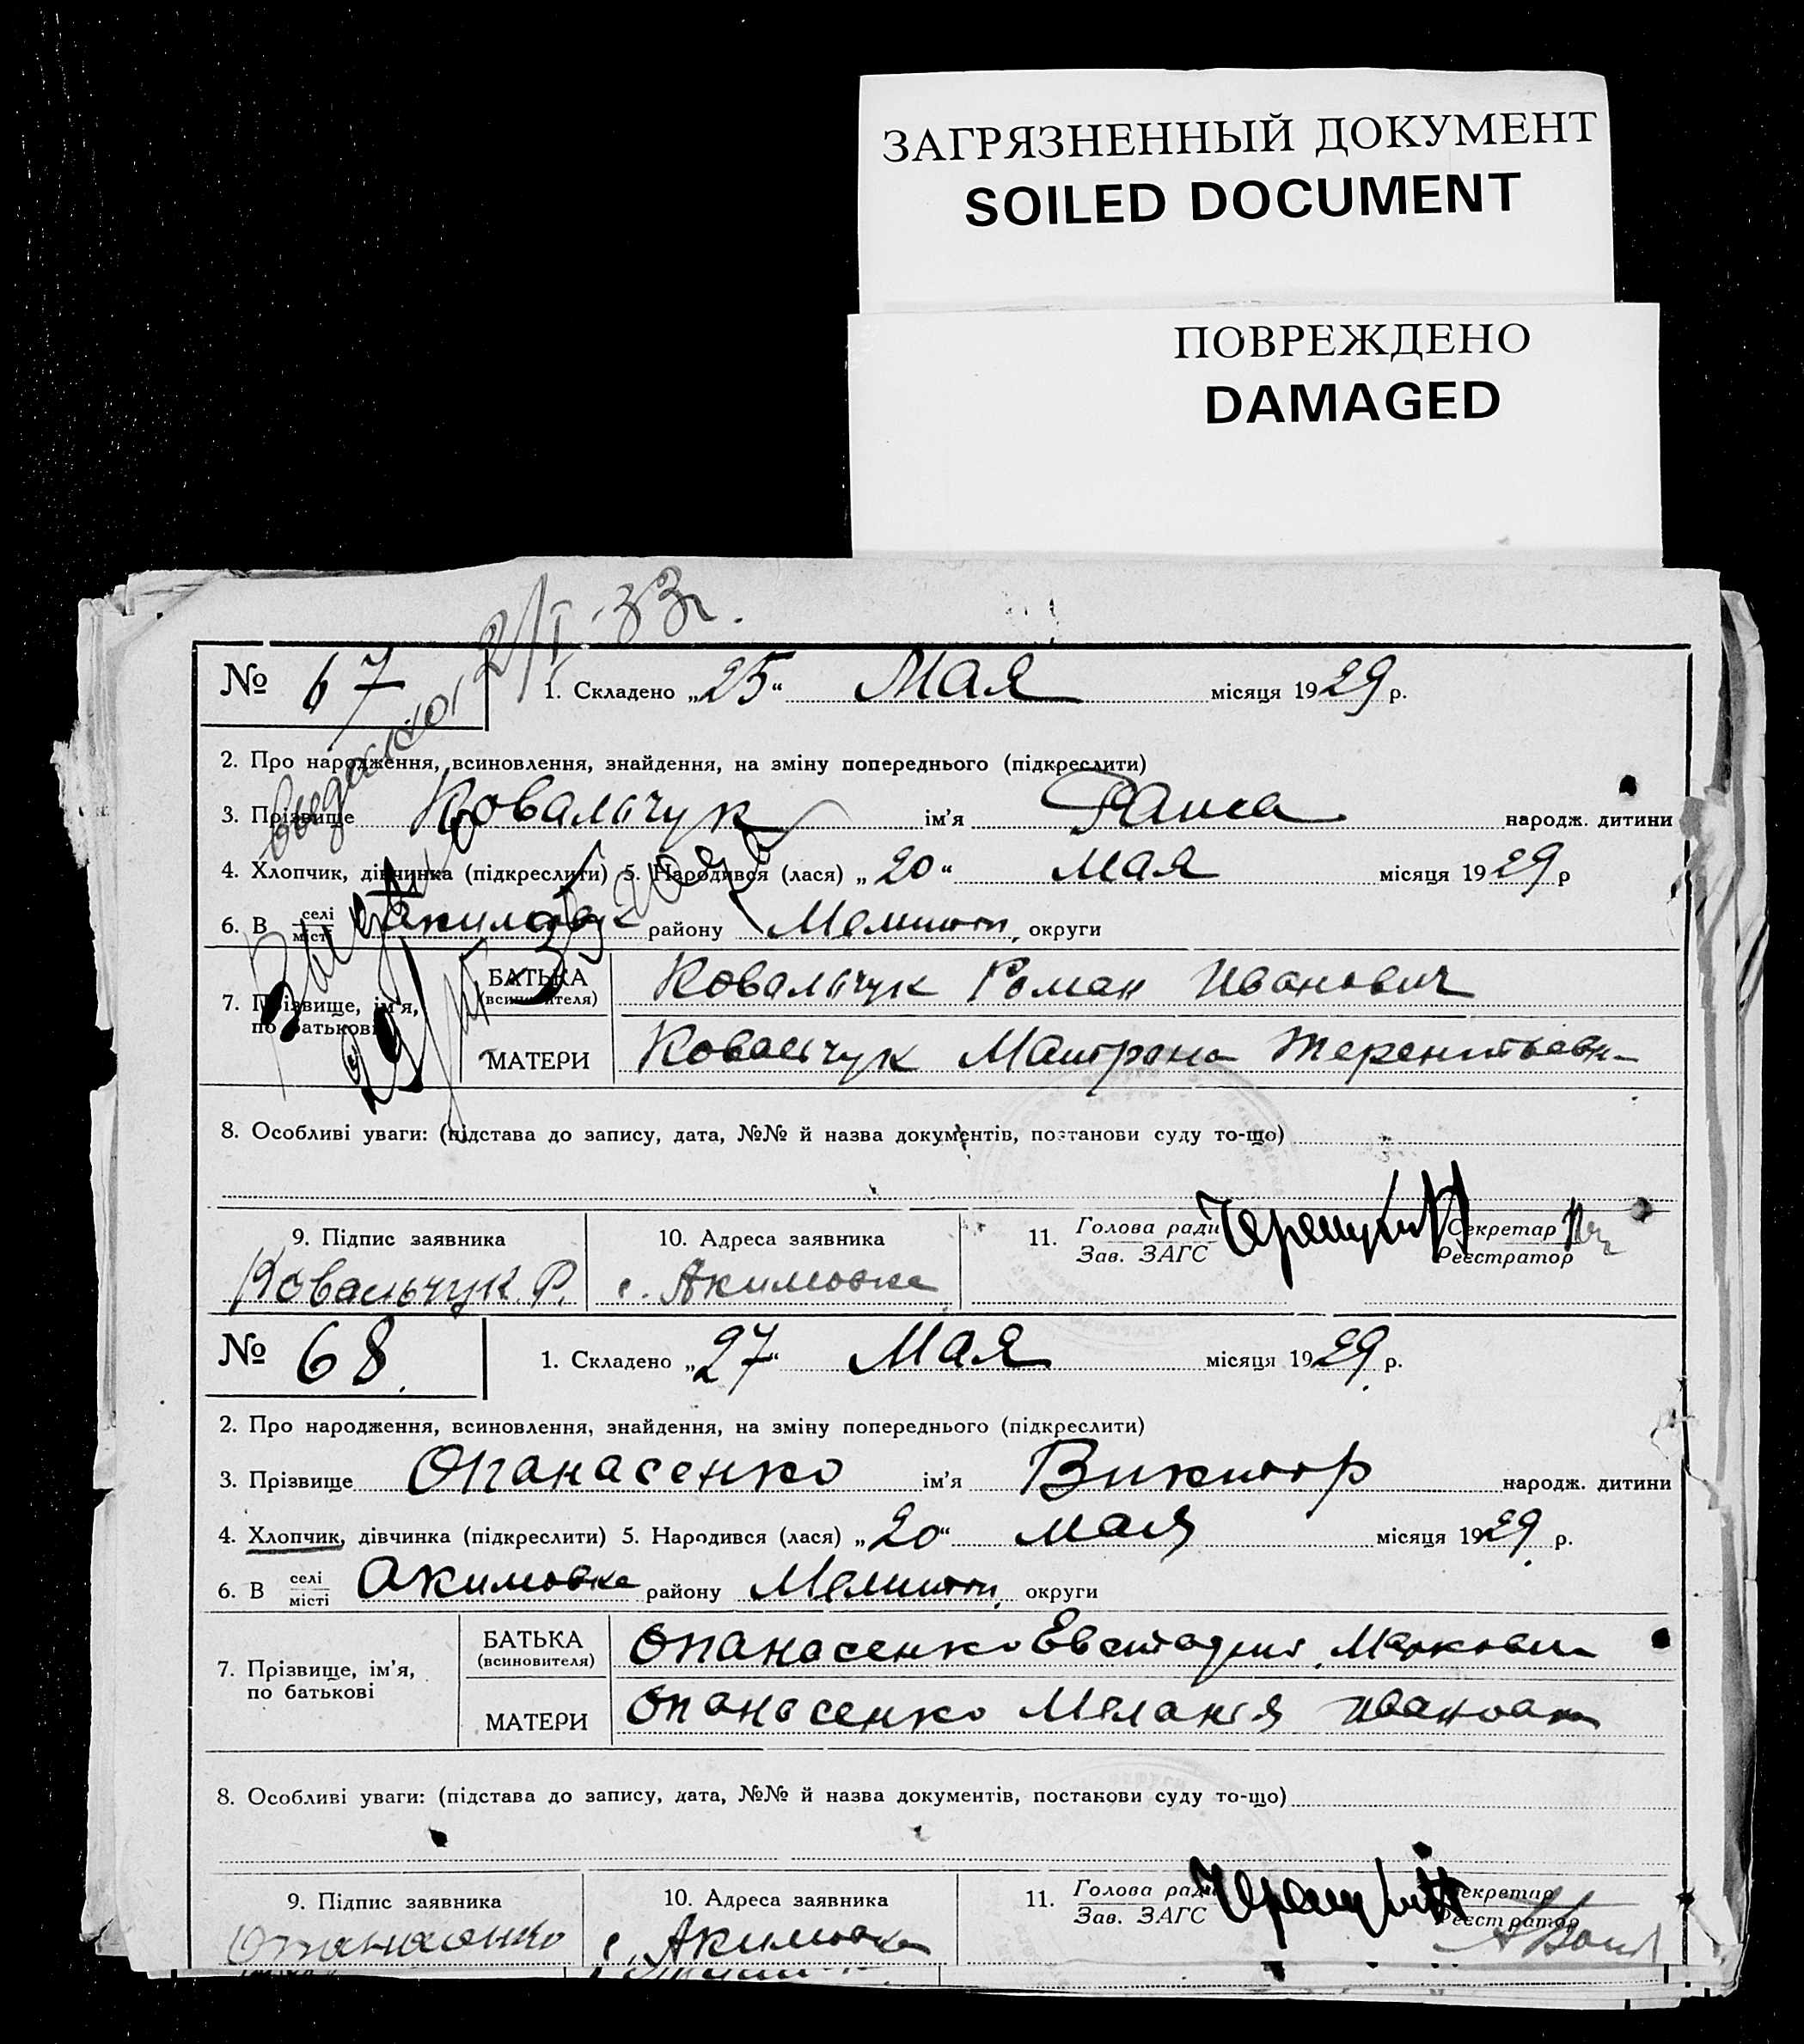 ЗАГРЯЗНЕННЫЙ ДОКУМЕНТ
SOILED DOCUMENT
ПОВРЕЖДЕНО
DAMAGED
2/I-33г.
№ 67 1. Складено „25“ Мая місяця 1929 р.
2. Про народження, всиновлення, знайдення, на зміну попереднього (підкреслити)
3. Прізвище Ковальчук ім’я Раиса народж. дитини
4. Хлопчик, дівчинка (підкреслити) 5. Народився (лася) „20“ Мая місяця 1929 р
6. В селі місті району Мелитоп. округи
7. Прізвище, ім’я, по батькові
БАТЬКА (всиновителя) Ковальчук Роман Иванович
МАТЕРИ Ковальчук Матрена Терентьевн
8. Особливі уваги: (підстава до запису, дата, №№ й назва документів, постанови суду то-що)
9. Підпис заявника 10. Адреса заявника 11. Голова ради Секретар
Зав. ЗАГС Реєстратор
Ковальчук Р. с. Акимовка
№ 68. 1. Складено „27“ Мая місяця 1929. р.
2. Про народження, всиновлення, знайдення, на зміну попереднього (підкреслити)
3. Прізвище Опанасенко ім’я Виктор народж. дитини
4. Хлопчик, дівчинка (підкреслити) 5. Народився (лася) „20“ мая місяця 1929. р.
6. В селі місті Акимовка району Мелитоп. округи
7. Прізвище, ім’я, по батькові
БАТЬКА (всиновителя) Опанасенко Маркович
МАТЕРИ Опанасенко Меланія Ивановн
8. Особливі уваги: (підстава до запису, дата, №№ й назва документів, постанови суду то-що)
9. Підпис заявника 10. Адреса заявника 11. Голова ради Секретар
Зав. ЗАГС Реєстратор
Опанасенко с. Акимовка